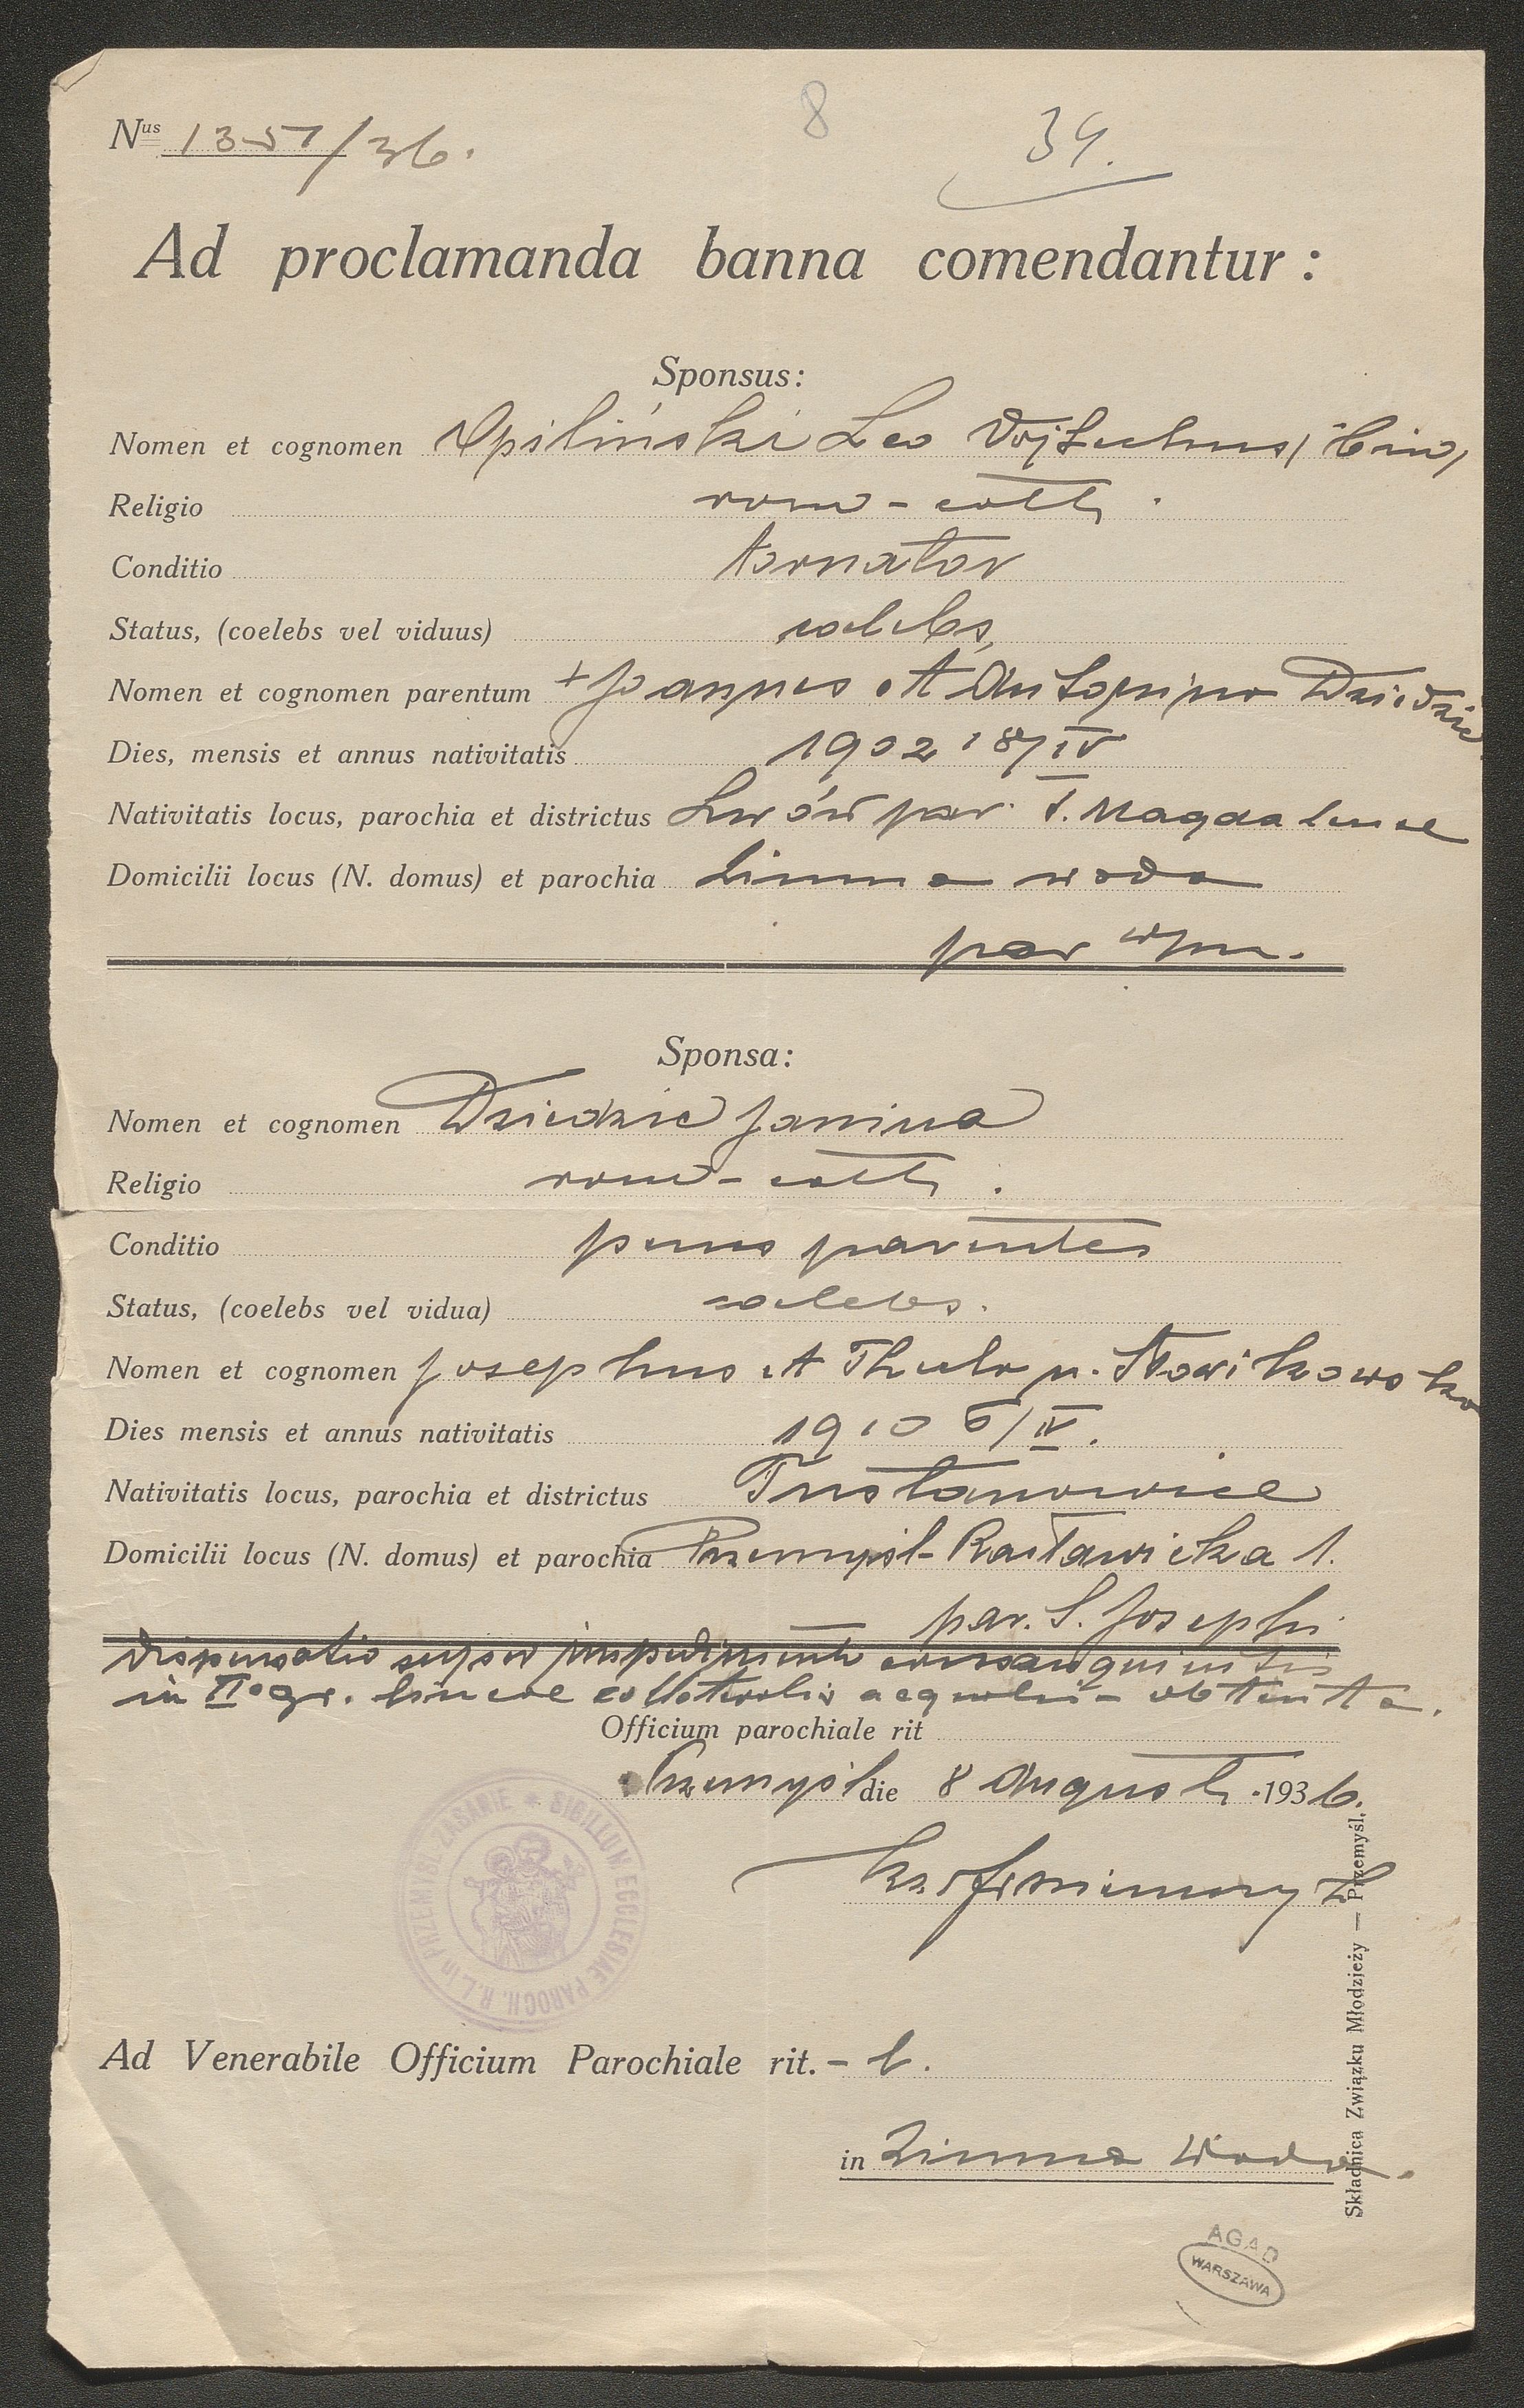 Nus 1351/36.
8
34.
Ad proclamanda banna comendantur :
Sponsus:
Nomen et cognomen Opiliński Leo
Religio rom-cath.
Conditio tornator
Status, (coelebs vel viduus) coelebs
Nomen et cognomen parentum + Joannes et Antonina Dziedzic
Dies, mensis et annus nativitatis 1902 18/IV
Nativitatis locus, parochia et districtus Lwów par. S. Magdalenae
Domicilii locus (N. domus) et parochia Zimna woda
par
Sponsa:
Nomen et cognomen Dziedzic Janina
Religio rom-cath.
Conditio penes parentes
Status, (coelebs vel vidua) coelebs.
Nomen et cognomen Josephus et Thecla n. Słowikowska
Dies mensis et annus nativitatis 1910 6/IV.
Nativitatis locus, parochia et districtus Tustanowice
Domicilii locus (N. domus) et parochia Przemyśl-Racławicka 1.
par. S. Josephi
Dispensatio super impedimento consanguinitatis
in II gr. lineae collateralis aequalis - obtenta.
Officium parochiale rit
Przemyśl die 8 Augusti 1936.
SIGILLUM ECCLESIAE PAROCH. R. L. in PRZEMYŚL ZASANIE
Ad Venerabile Officium Parochiale rit. - l.
in Zimna Woda.
Składnica Związku Młodzieży — Przemyśl.
AGAD
WARSZAWA